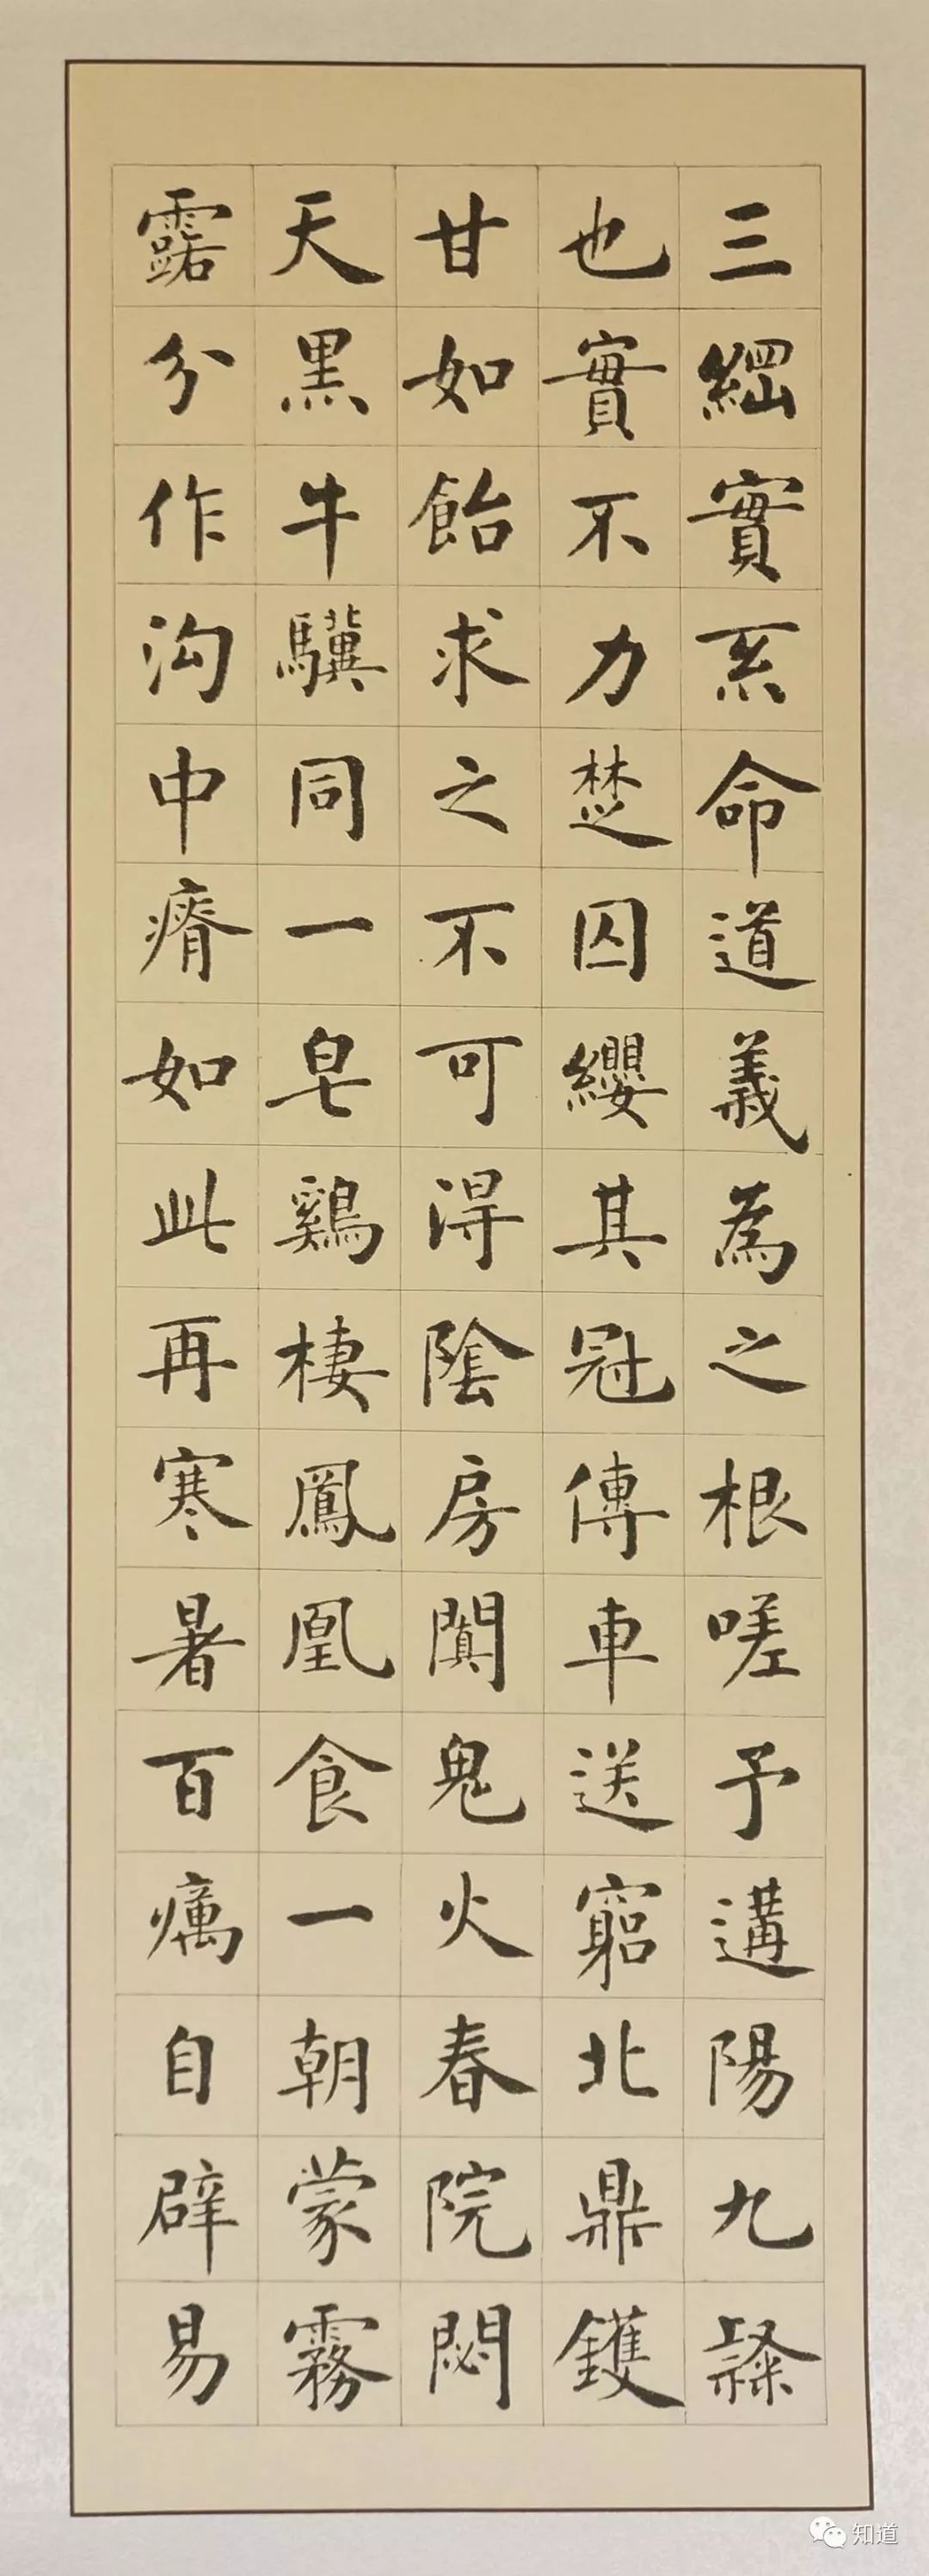 三綱實系命道義為之根嗟予遘陽九隸
也實不力楚囚纓其冠傳車送窮北鼎鑊
甘如飴求之不可得陰房闃鬼火春院閟
天黑牛驥同一皂鷄棲鳳凰食一朝蒙霧
露分作沟中瘠如此再寒暑百癘自辟易
知道